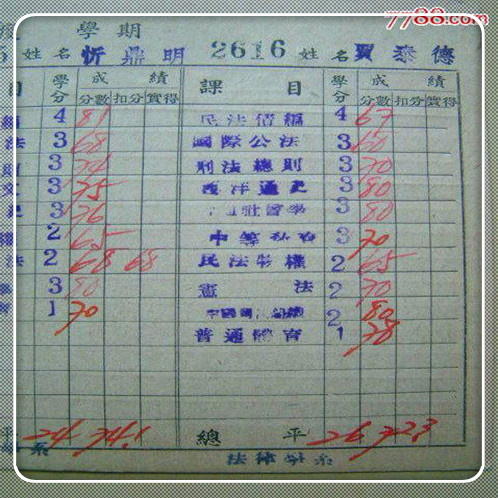 7788.com
學期
姓名 忻鼎明 2616 姓名 賈泰德
目 學分 成績 課目 學分 成績
分數 扣分 實得 分數 扣分 實得
編 4 81 民法債編 4 67
法 3 68 國際公法 3 60
則 3 刑法總則 3 70
3 75 西洋通史 3 80
3 76 3 80
權 2 65 3 70
法 2 68 68 民法物權 2 65
3 80 憲法 2 70
1 70 2 80
普通體育 1 78
平 24 74.1 總平 26 72.3
系 法律學系